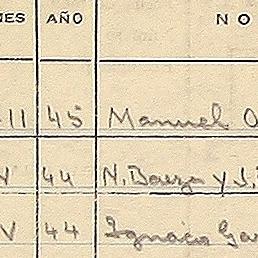 NES AÑO NO
11 45 Manuel O
V 44 N. Baeza y J.
V 44 Ignacio Gar